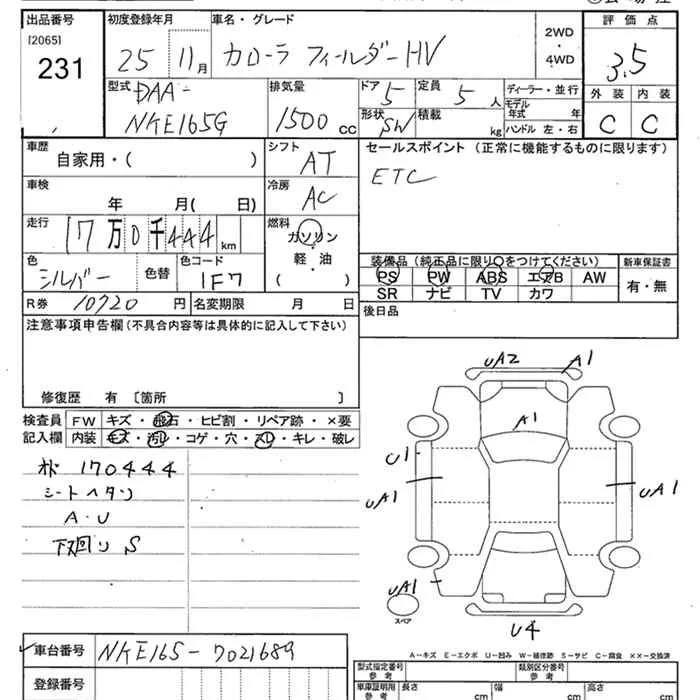 出品番号 初度登録年月 車名・グレード 2WD・4WD 評価点
[2065]
231 25 11月 カローラ フィールダーHV 3.5
型式 DAA- 排気量 ドア 5 定員 5人 ディーラー・並行 外装 内装
NKE165G 1500cc 形状 SW 積載 kg モデル年式 年 C C
ハンドル 左・右
車歴 シフト セールスポイント(正常に機能するものに限ります)
自家用・( ) AT ETC
車検 冷房
年 月( 日) AC
走行 燃料
17万0千444km ガソリン
色 色替 色コード 軽・油
シルバー 1F7 ( )
装備品(純正品に限り○をつけてください) 新車保証書
PS PW ABS エアB AW 有・無
SR ナビ TV カワ
R券 10720円 名変期限 月 日 後日品
注意事項申告欄(不具合内容等は具体的に記入して下さい)
修復歴 有 〔箇所 〕
検査員 FW キズ・飛石・ヒビ割・リペア跡・×要
記入欄 内装 キズ・汚レ・コゲ・穴・スレ・キレ・破レ
170444
シートヘタリ
A・U
下廻りS
UA2 A1
A1
U1
UA1 UA1
UA1
スペア
U4
A-キズ E-エクボ U-凹み W-補修跡 S-サビ C-腐食 ××-交換済
車台番号 NKE165-7021689
登録番号
型式指定番号 参考 類別区分番号 参考
車庫証明用 参考 長さ cm 幅 cm 高さ cm